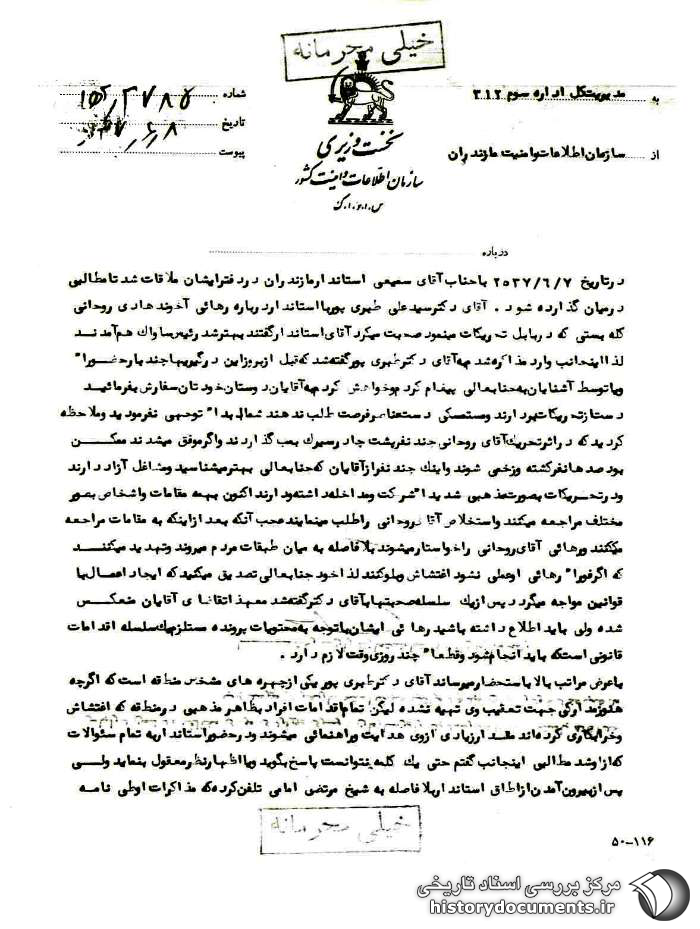 خیلی محرمانه
به مدیریت کل اداره سوم ۳۱۲
شماره
از سازمان اطلاعات و امنیت مازندران
تاریخ
پیوست
نخست وزیری
سازمان اطلاعات و امنیت کشور
س.ا.و.ا.ک
درباره
در تاریخ ۲۵۳۷/۶/۷ با جناب آقای سمیعی استاندار مازندران در دفتر ایشان ملاقات شد تا مطالبی
در میان گذارده شود . آقای دکتر سید علی طبری پور با استاندار درباره رهائی آخوند هادی روحانی
کله بستی که در بابل تحریکات مینمود صحبت میکرد آقای استاندار گفتند بهتر شد رئیس ساواک هم آمدند
لذا اینجانب وارد مذاکره شد به آقای دکتر طبری پور گفته شد که قبل از بروز این درگیریها چند بار حضورا"
و یا توسط آشنایان به جنابعالی پیغام کردم و خواهش کردم به آقایان دوستان خودتان سفارش بفرمائید
دست از تحریکات بردارند و دست عناصر فرصت طلب ندهند شما ابدا" توجهی نفرمودید و ملاحظه
کردید که در اثر تحریک آقای روحانی چند نفر پشت چادر سیرک بمب گذاردند و اگر موفق میشدند ممکن
بود صدها نفر کشته و زخمی شوند و اینک چند نفر از آقایان که جنابعالی بهتر میشناسید و مشاغل آزاد دارند
و در تحریکات بصورت مذهبی شدیدا" شرکت و مداخله داشته و دارند اکنون بهمه مقامات و اشخاص بصور
مختلف مراجعه میکنند و استخلاص آقای روحانی را طلب مینمایند عجب آنکه بعد از اینکه به مقامات مراجعه
میکنند و رهائی آقای روحانی را خواستار میشوند بلافاصله به میان طبقات مردم میروند و تهدید میکنند
که اگر فورا" رهائی او عملی نشود اغتشاش و بلوا کنند لذا خود جنابعالی تصدیق میکنید که ایجاد اعمال با
قوانین مواجه میگردد پس از یک سلسله صحبتها به آقای دکتر گفته شد معهذا تقاضای آقایان منعکس
شده ولی باید اطلاع داشته باشید رهائی ایشان با توجه به محتویات پرونده مستلزم یک سلسله اقدامات
قانونی است که باید انجام شود و قطعا" چند روزی وقت لازم دارد .
با عرض مراتب بالا باستحضار میرساند آقای دکتر طبری پور یکی از چهره های مشخص منطقه است که اگرچه
هنوز مدارکی جهت تعقیب وی تهیه نشده لیکن تمام اقدامات افراد بظاهر مذهبی در منطقه که اغتشاش
و خرابکاری کرده اند از وی هدایت و راهنمائی میشوند و در حضور استاندار به تمام سئوالات
که از او شد مطالبی اینجانب گفتم حتی یک کلمه نتوانست پاسخ بگوید و یا اظهار نظر معقول بنماید ولی
پس از بیرون آمدن از اطاق استاندار بلافاصله به شیخ مرتضی امامی تلفن کرده که مذاکرات او طی نامه
خیلی محرمانه
۵۰-۱۱۶
مرکز بررسی اسناد تاریخی
historydocuments.ir